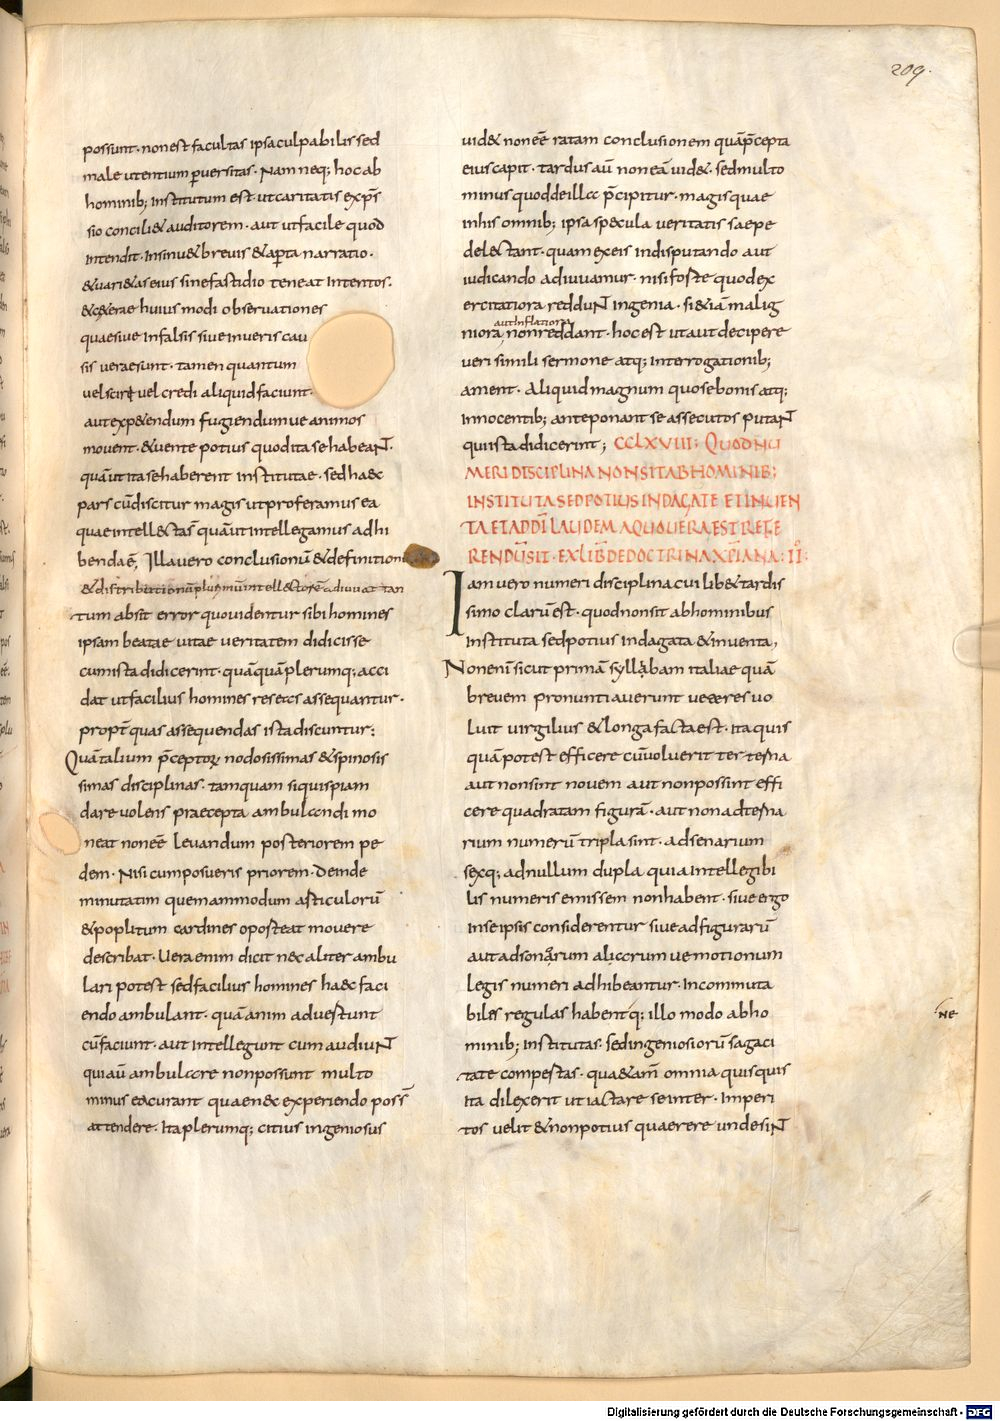 209.
possunt· non est facultas ipsa culpabilis sed
male utentium puersitas· Nam neq; hoc ab
hominib; institutum est· ut caritatis exp̄s
sio concili& auditorem· aut ut facile quod
intendit· insinu& brevis & aperta narratio·
& uari&as eius sine fastidio teneat intentos·
& c&erae huius modi observationes
quae siue in falsis siue in ueris cau
sis uerae sunt· tamen quantum
uel sciri uel credi aliquid faciunt·
aut exp&endum fugiendumue animos
mouent· & uere potius quod ita se habeant·
quā ut ita se haberent institutae· sed haec
pars cū discitur magis ut proferamus ea
quae intell&ta sī quā ut intellegamus adhi
benda ē; Illa uero conclusionū & definitionū
& distributionū plurimū intellectorē adiuuat tan
tum absit error quo uidentur sibi homines
ipsam beatae uitae ueritatem didicisse
cum ista didicerint· quāquā plerumq; acci
dat ut facilius homines res eas assequantur·
propt̄ quas assequendas ista discuntur;
Quā talium p̄ceptorꝝ nodosissimas & spinosis
simas disciplinas· tamquam si quispiam
dare uolens praecepta ambulandi mo
neat non eē leuandum posteriorem pe
dem· Nisi cum posueris priorem· Deinde
minutatim quem ammodum articulorū
& poplitum cardines oporteat mouere
describat· Uera enim dicit nec aliter ambu
lari potest sed facilius homines haec faci
endo ambulant· quā anim aduertunt
cū faciunt· aut intellegunt cum audiunt
qui aū ambulare non possunt multo
minus ea curant quae nec experiendo poss̄
attendere· Ita plerumq; citius ingeniosus
uid& non eē ratam conclusionem quā p̄cepta
eius capit· tardus aū non eā uid&· sed multo
minus quod de illa p̄cipitur· magisquae
in his omnib; ipsa spectacula ueritatis saepe
del&tant· quam ex eis in disputando aut
iudicando adiuuamur· nisi forte quod ex
ercitatiora reddunt ingenia· si &iā malig
aut inflatiora
niora non reddant· hoc est ut aut decipere
ueri simili sermone atq; interrogationib;
ament· Aliquid magnum quo se bonis atq;
innocentib; anteponant se assecutos putant
qui ista didicerint; CCLXVIII: QUOD NU
MERI DISCIPLINA NON SIT AB HOMINIB;
INSTITUTA SED POTIUS INDAGATE ET INUEN
TA ET AD DĪ LAUDEM A QUO UERA EST REFE
RENDŪ SIT· EX LIB̄ DE DOCTRINA XPIANA· II·
Iam uero numeri disciplina cui lib& tardis
simo clarū est· quod non sit ab hominibus
instituta sed potius indagata & inuenta,
Non enī sicut primā syllabam italiae quā
breuem pronuntiauerunt ueteres uo
luit uirgilius & longa facta est· ita quis
quā potest efficere cū uoluerit ter terna
aut non sint nouem aut non possint effi
cere quadratam figurā· aut non ad terna
rium numerū tripla sint· ad senarium
sexq; ad nullum dupla quia intellegibi
lis numeris emissem non habent· siue ergo
in se ipsis considerentur siue ad figurarū
aut ad sonorum aliarum ue motionum
legis numeri adhibeantur· incommuta
biles regulas habent q; illo modo ab ho
minib; institutas· sed ingeniosiorū sagaci
NE
tate compertas· qua &iam̄ omnia quisquis
ita dilexerit ut iactare se inter· imperi
tos uelit & non potius quaerere unde sint
Digitalisierung gefördert durch die Deutsche Forschungsgemeinschaft - DFG